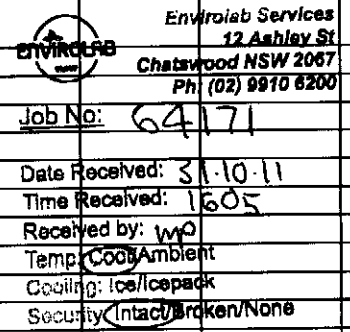 Envirolab Services
12 Ashley St
Chatswood NSW 2067
Ph: (02) 9910 6200
ENVIROLAB
Job No: 64171
Date Received: 31.10.11
Time Received: 1605
Received by: MP
Temp: Cool/Ambient
Cooling: Ice/Icepack
Security: Intact/Broken/None